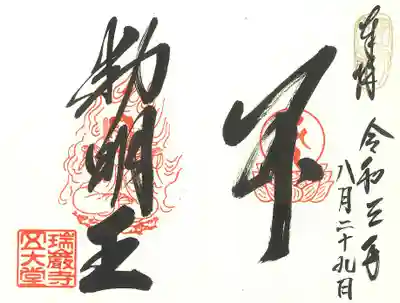 奉拝
令和三年
八月二十九日
不
動明王
瑞巖寺
五大堂